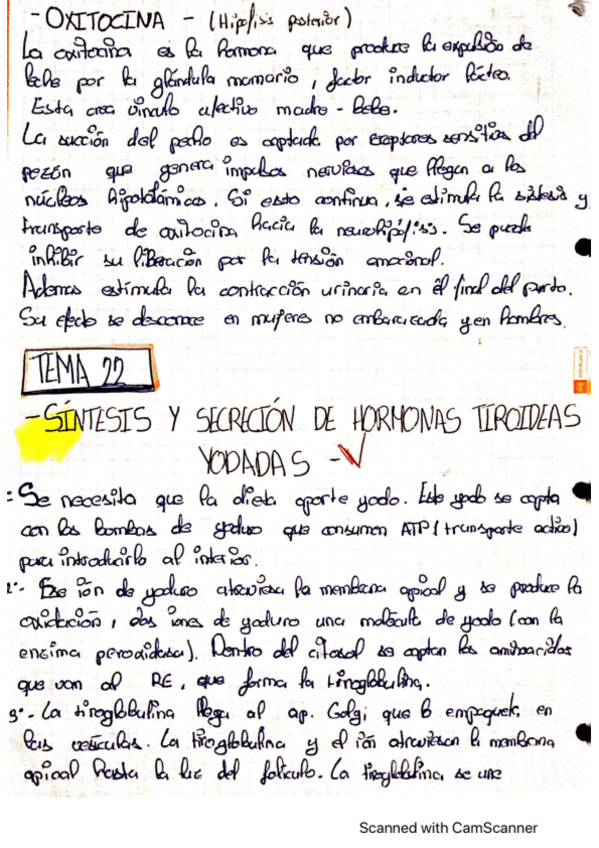 - OXITOCINA - (Hipófisis posterior)
La oxitocina es la hormona que produce la expulsión de
leche por la glándula mamaria, factor inductor lácteo.
Esta crea vínculo afectivo madre - bebe.
La succión del pecho es captada por receptores sensitivos del
pezón que genera impulsos nerviosos que llegan a los
núcleos hipotalámicos. Si esto continua, se estimula la síntesis y
transporte de oxitocina hacia la neurohipófisis. Se puede
inhibir su liberación por la tensión emocional.
Ademas estimula la contracción urinaria en el final del parto.
Su efecto se desconoce en mujeres no embarazada y en hombres.
TEMA 22
- SÍNTESIS Y SECRECIÓN DE HORMONAS TIROIDEAS
YODADAS -
- Se necesita que la dieta aporte yodo. Este yodo se capta
con las bombas de yoduro que consumen ATP (transporte activo)
para introducirlo al interior.
2º- Ese ión de yoduro atraviesa la membrana apical y se produce la
oxidación, dos iones de yoduro una molécula de yodo (con la
enzima peroxidasa). Dentro del citosol se captan los aminoacidos
que van al RE, que forma la tiroglobulina.
3º- La tiroglobulina llega al ap. Golgi que lo empaqueta en
las vesículas. La tiroglobulina y el ión atraviesan la membrana
apical hasta la luz del folículo. La tiroglobulina se une
Scanned with CamScanner